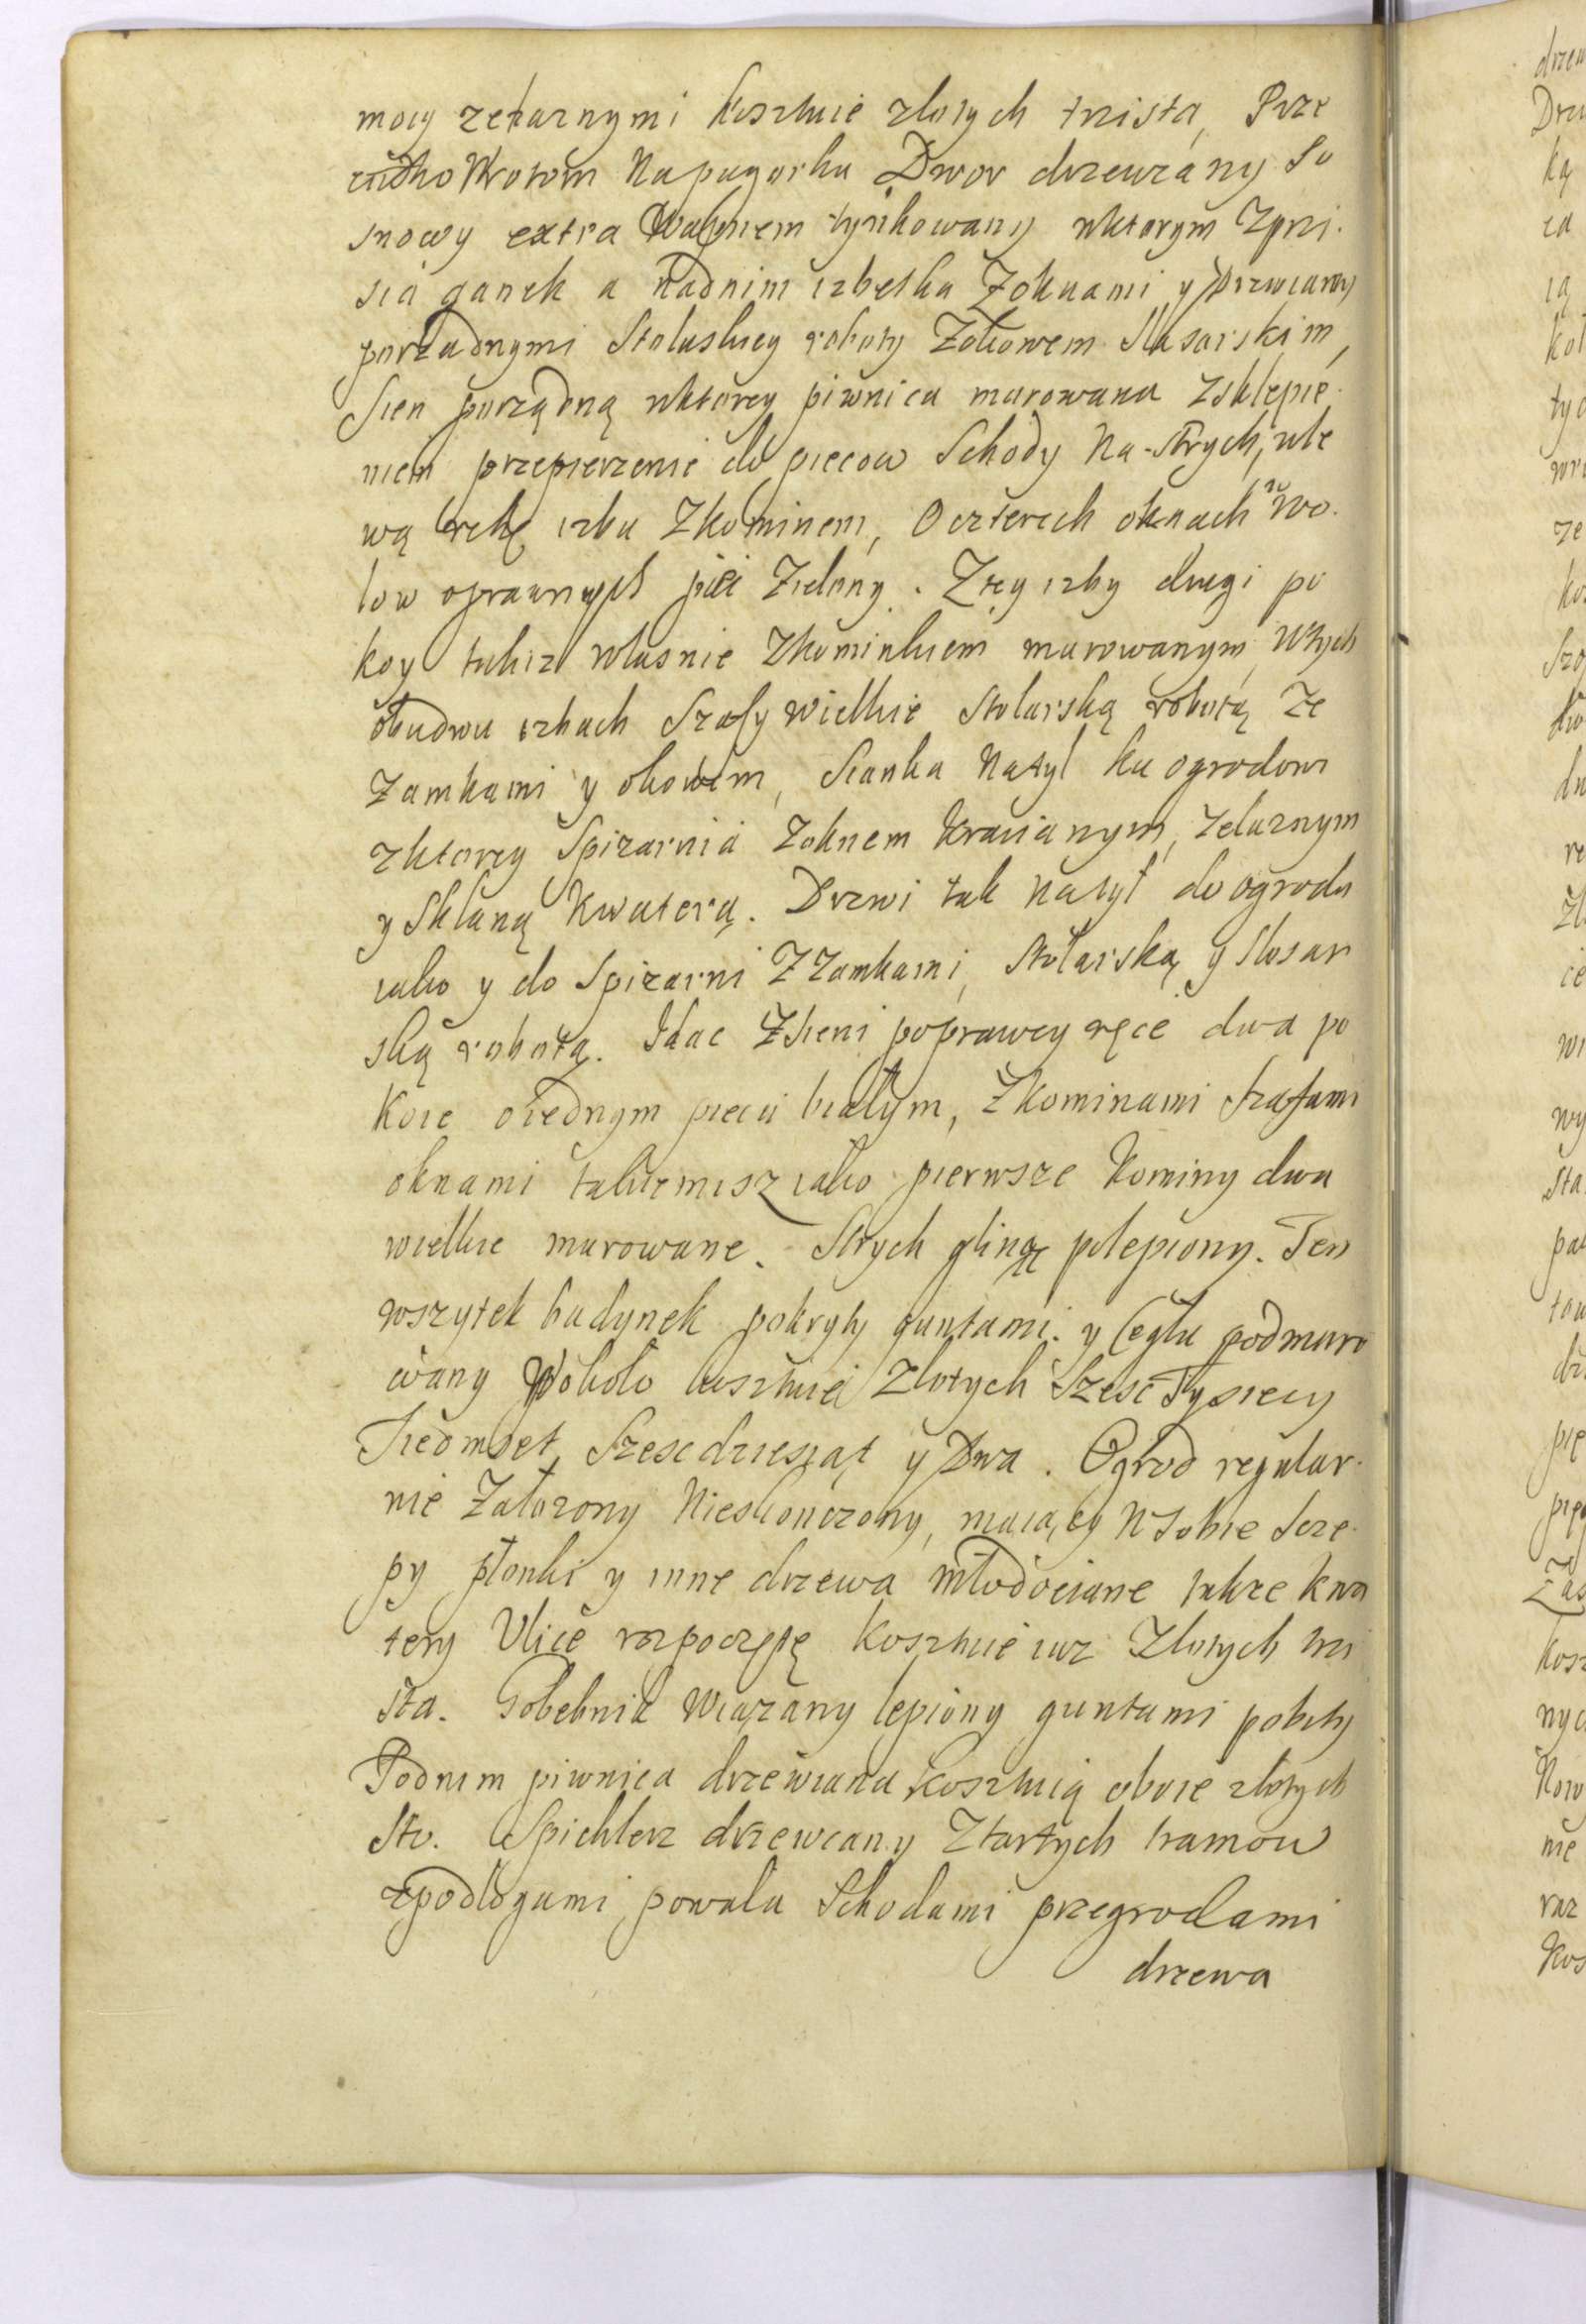 mocy zetaznymi kosztuie zlotych trzista, Prze
ciwko Wrotom Napagorku Dwor drzewiány So
snowy extra Wapnem tynkowany wktorym Zprzi.
sia ganek a Nadnim izbetka Zoknami y Drzwiamy
porzadnymi Stolarskiey roboty Zokowem Slusarskim,
Sien porządną wktorey piwnica murowana Zsklepie.
niem przepierzenie do piecow Schody Na-Strych, wle
wą rekę izba Zkominem, O czterech oknach wo.
low oprawnych piec Zielony. Ztey izby drugi po
koy takiz wlasnie Zkominkiem murowanym, Wtych
obudwu izbach Szafy wielkie Stolarską robotą Ze
Zamkami y okowem, Sianka Natyl ku ogrodowi
zktorey Spizarnia Zoknem Kracianym, Zelaznym
y Sklaną Kwaterą. Drzwi tak Natył do ogrodu
iako y do Spizarni ZZamkami, Stolarską y Slosar
ską robotą. Idac Zsieni poprawey ręce dwa po
koie oiednym piecu białym, Zkominami Szafami
oknami takiemisz iako pierwsze Kominy dwa
wielkie murowane. Strych gliną polepiony. Ten
wszytek budynek pokryty guntami. y Cegłu podmuro
wany Wokoło kosztuie Zlotych Szesc Tysiecy
Siedmset Szescdziesiąt y Dwa. Ogrod regular.
nie Założony Nieskonczony, maiący W Sobie Scze.
py płonki y inne drzewa młodociane takze kwa
tery Ulice rozpoczętę kosztuie iuz Zlotych trzi
sta. Gołebnik Wiązany lepiony guntami pobity
Podnim piwnica drzewiana kosztuią oboie zlotych
Sto. Spichlerz drzewiany Ztartych tramow
zpodlogami powala Schodami przegrodami
drzewa